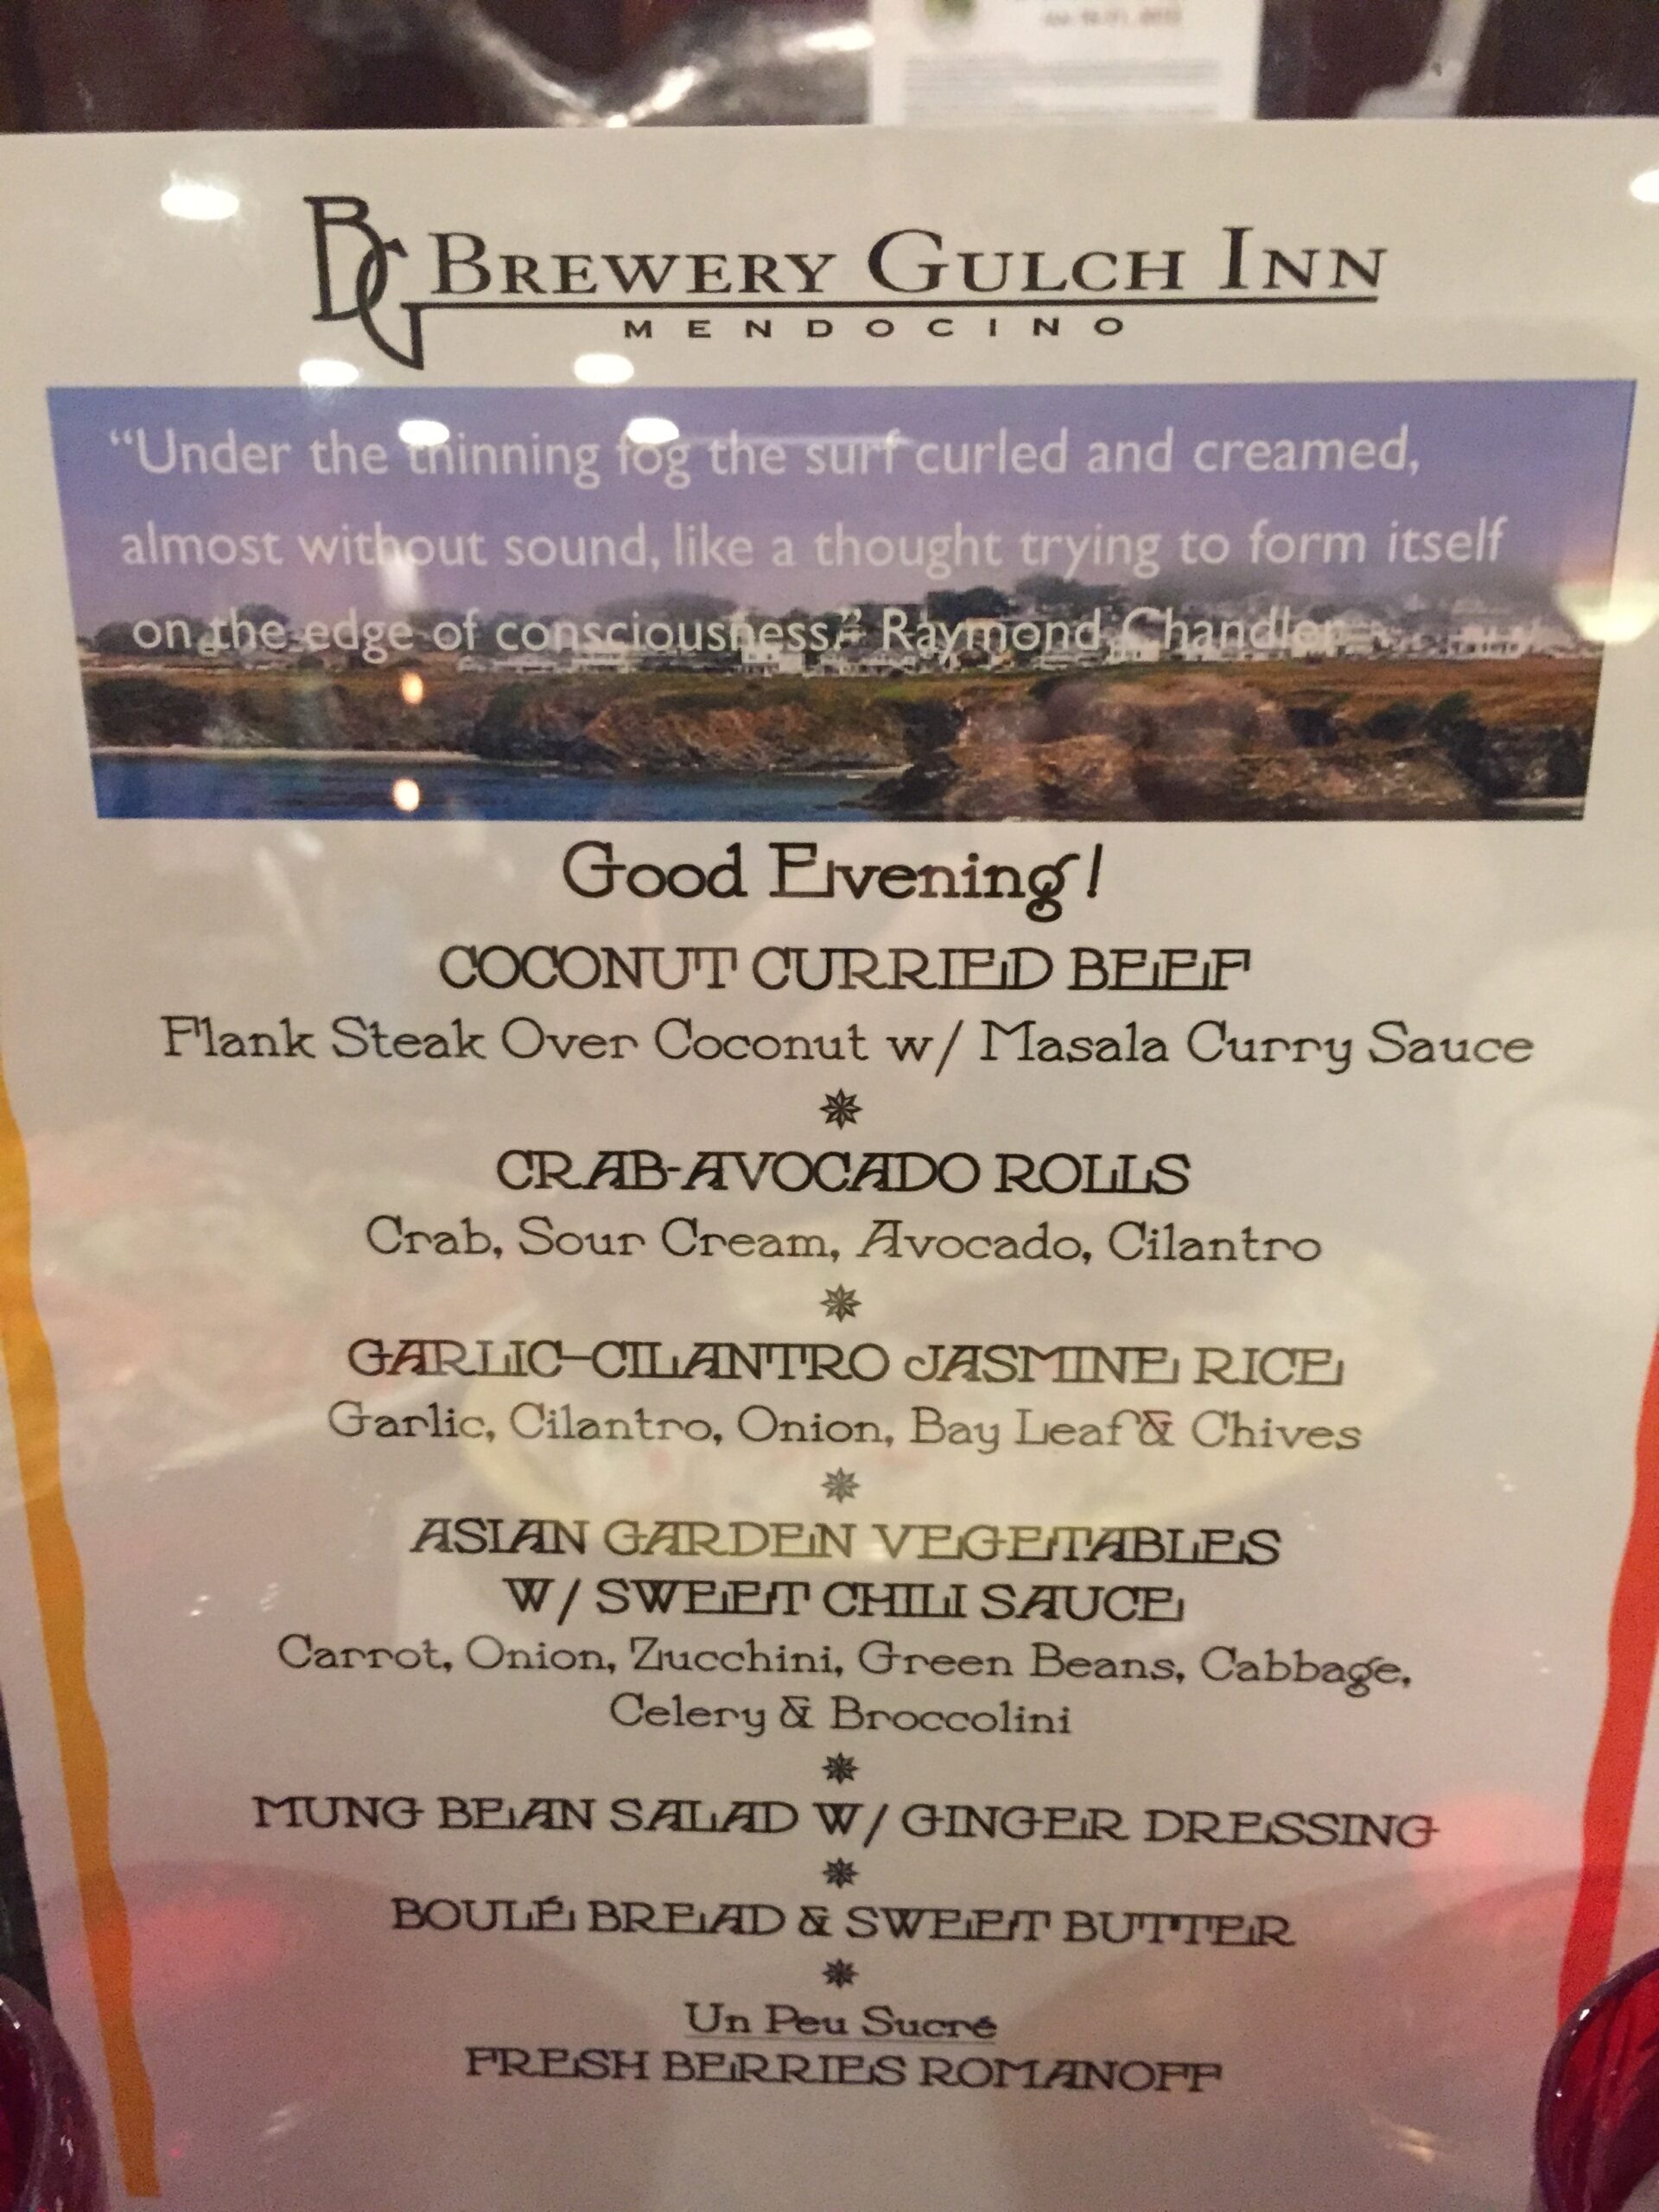 BG BREWERY GULCH INN
MENDOCINO
“Under the thinning fog the surf curled and creamed,
almost without sound, like a thought trying to form itself
on the edge of consciousness.” Raymond Chandler
Good Evening!
COCONUT CURRIED BEEF
Flank Steak Over Coconut w/ Masala Curry Sauce
CRAB-AVOCADO ROLLS
Crab, Sour Cream, Avocado, Cilantro
GARLIC-CILANTRO JASMINE RICE
Garlic, Cilantro, Onion, Bay Leaf & Chives
ASIAN GARDEN VEGETABLES
W/ SWEET CHILI SAUCE
Carrot, Onion, Zucchini, Green Beans, Cabbage,
Celery & Broccolini
MUNG BEAN SALAD W/ GINGER DRESSING
BOULÉ BREAD & SWEET BUTTER
Un Peu Sucré
FRESH BERRIES ROMANOFF